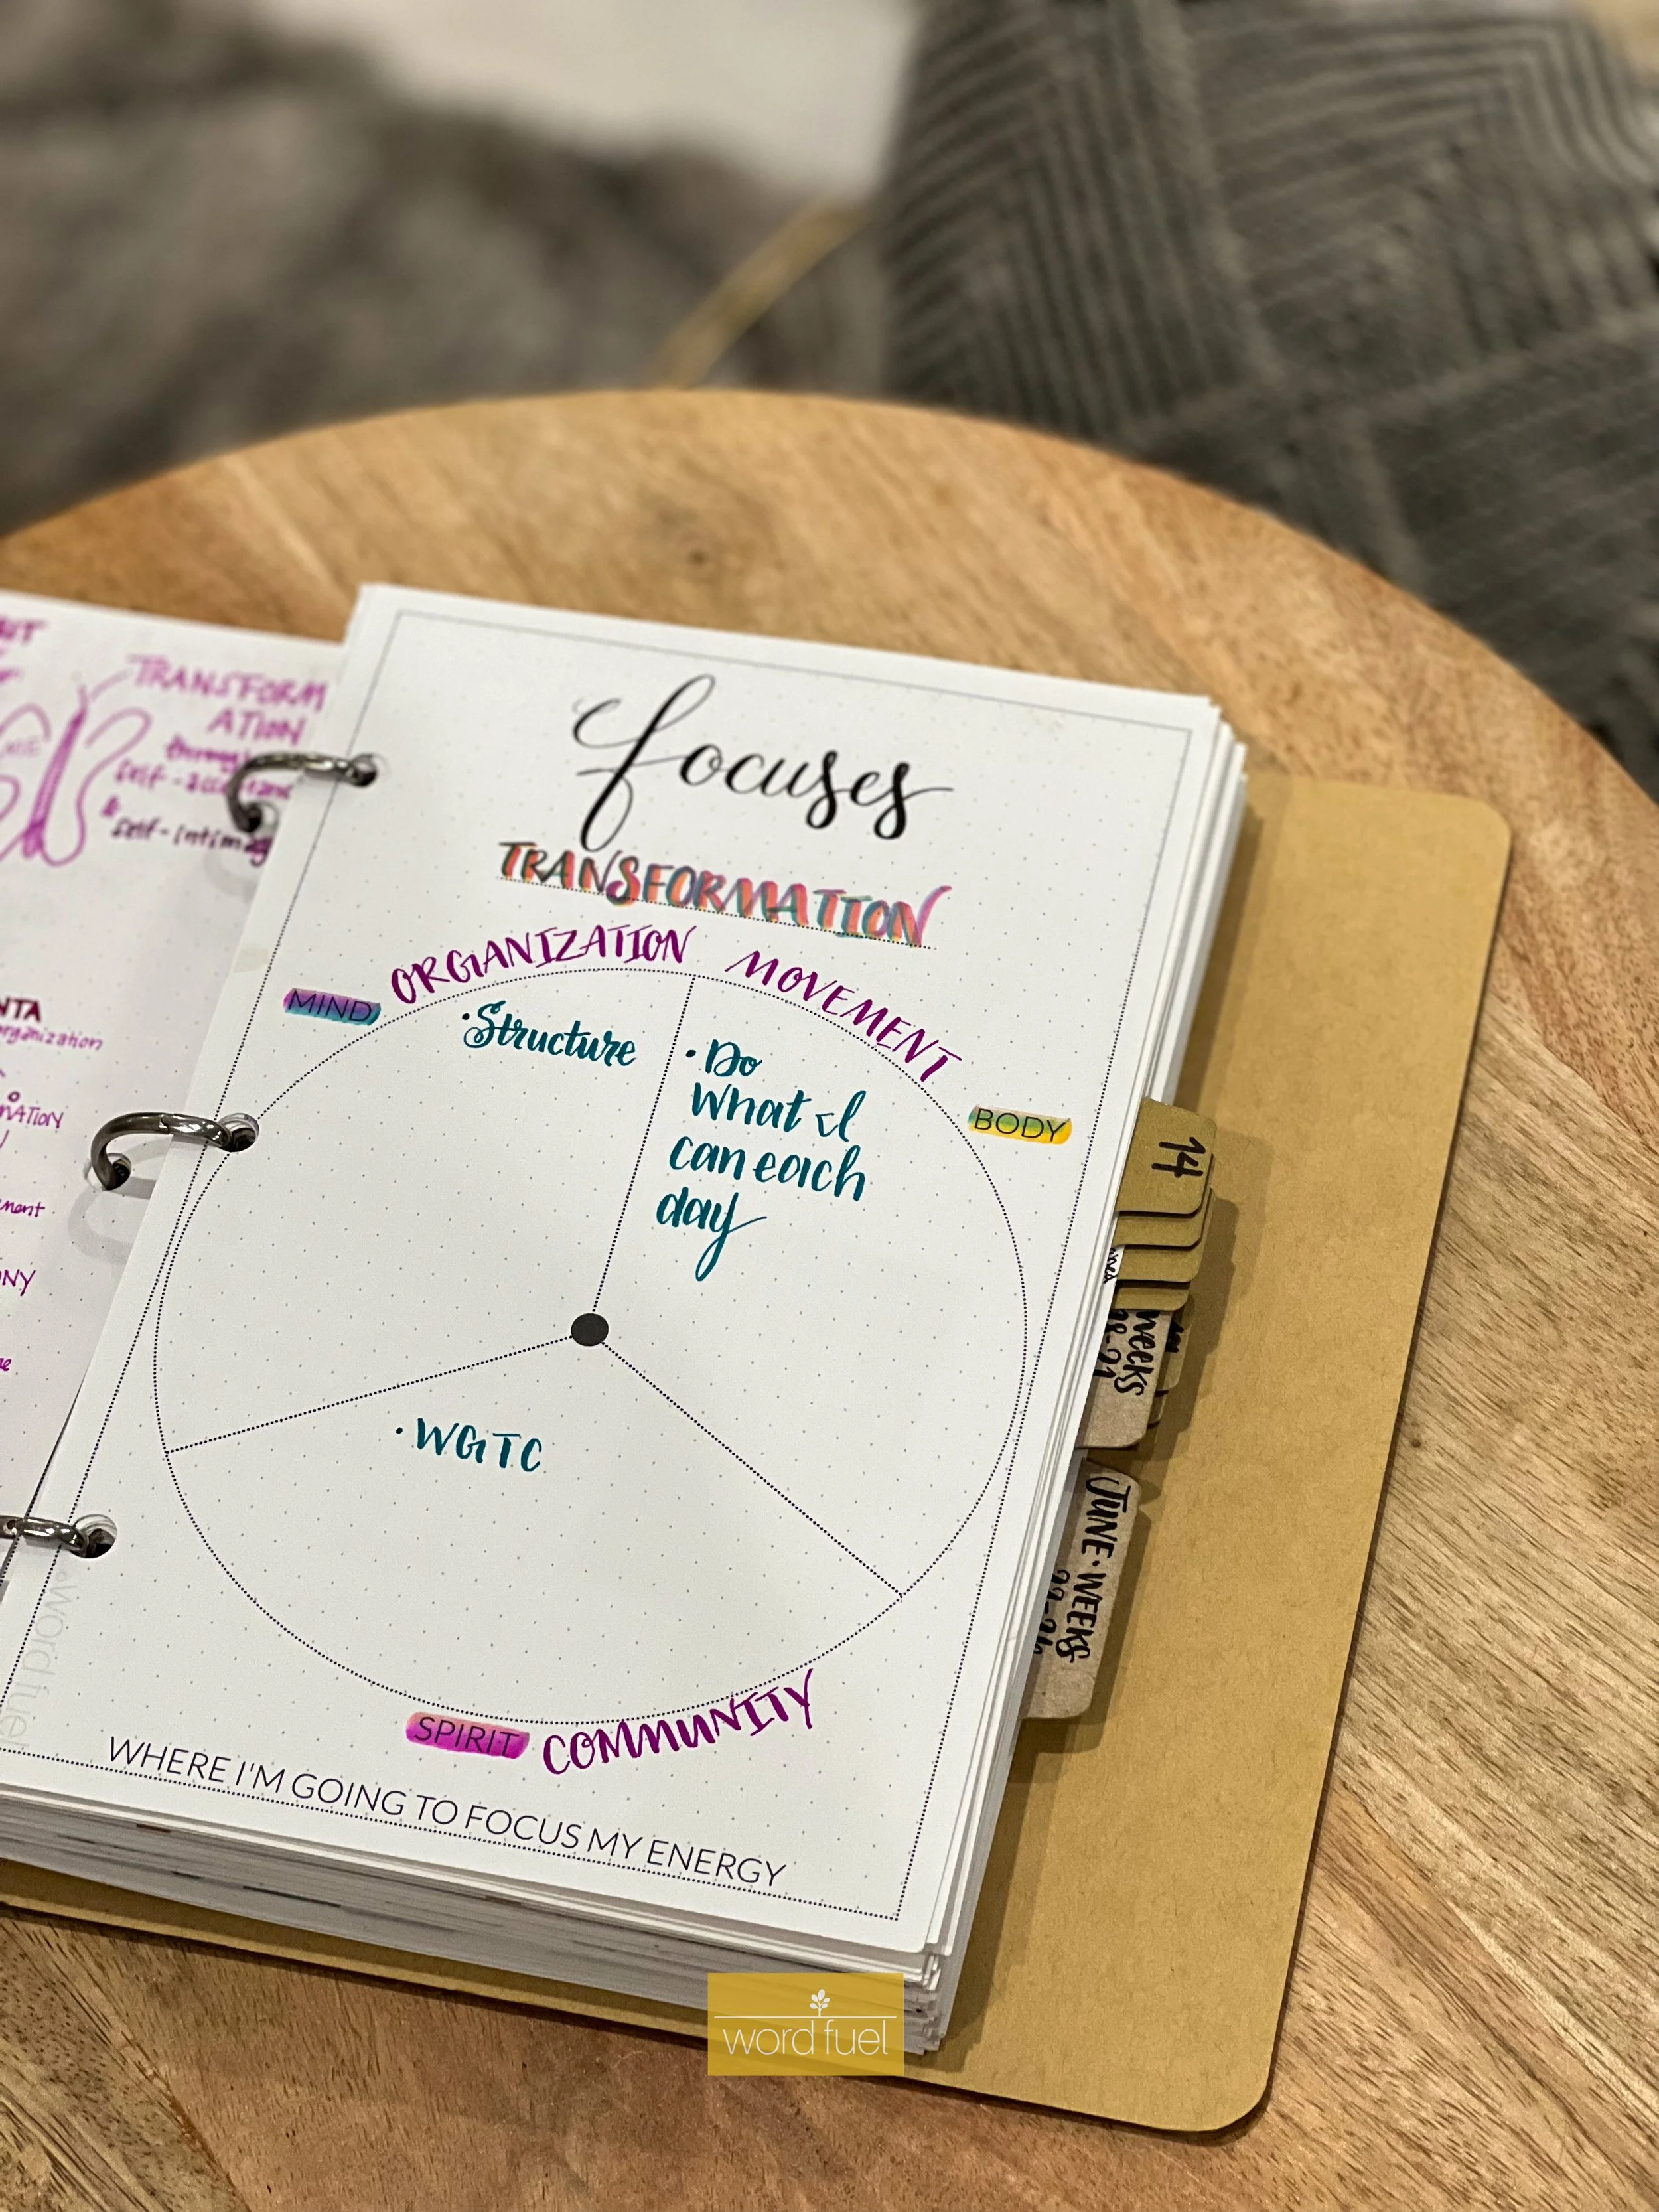 TRANSFORM
ATION
through
self-
&
self-
organization
focuses
TRANSFORMATION
ORGANIZATION MOVEMENT
MIND
• Structure
• Do
what I
can each
day
BODY
• WGTC
SPIRIT COMMUNITY
WHERE I'M GOING TO FOCUS MY ENERGY
word fuel
14
weeks
JUNE • WEEKS
word fuel